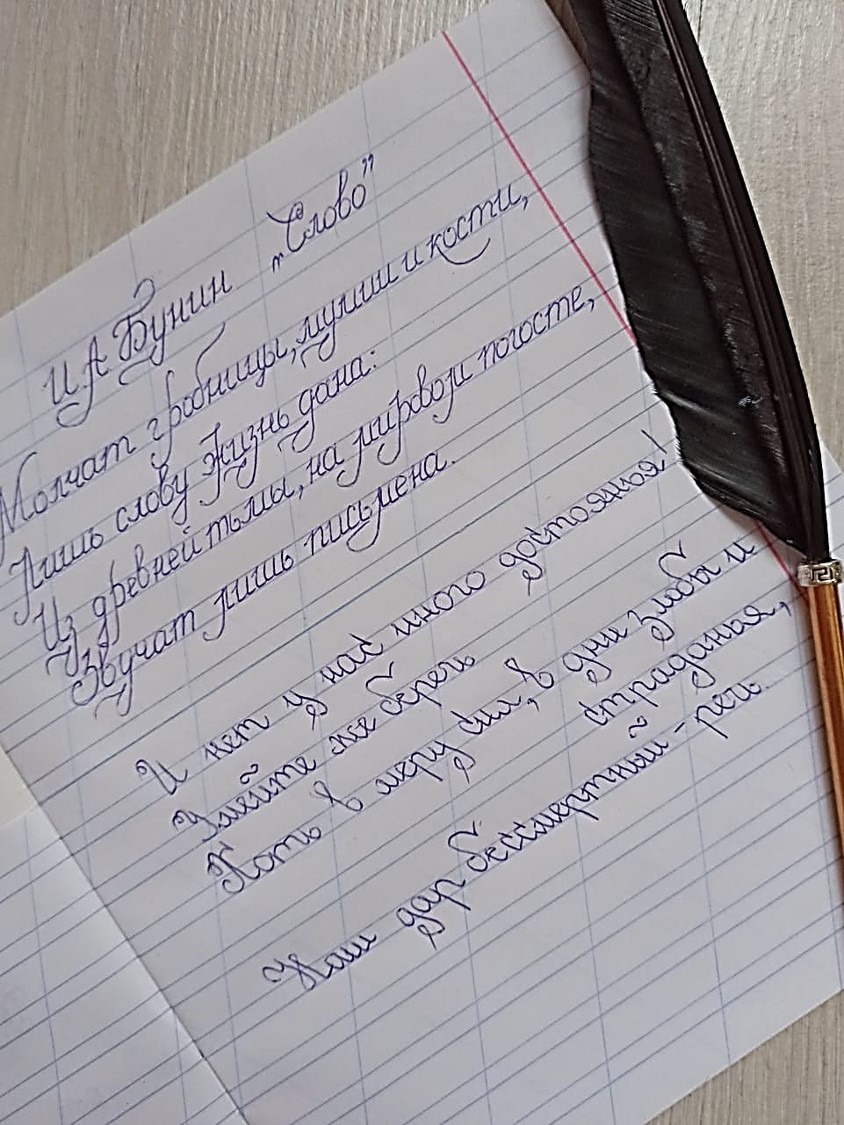 И А Бунин „Слово”
Молчат гробницы, мумии и кости,
Лишь слову жизнь дана:
Из древней тьмы, на мировом погосте,
Звучат лишь письмена.
И нет у нас иного достоянья!
Умейте же беречь
Хоть в меру сил, в дни злобы и
страданья,
Наш дар бессмертный - речь.